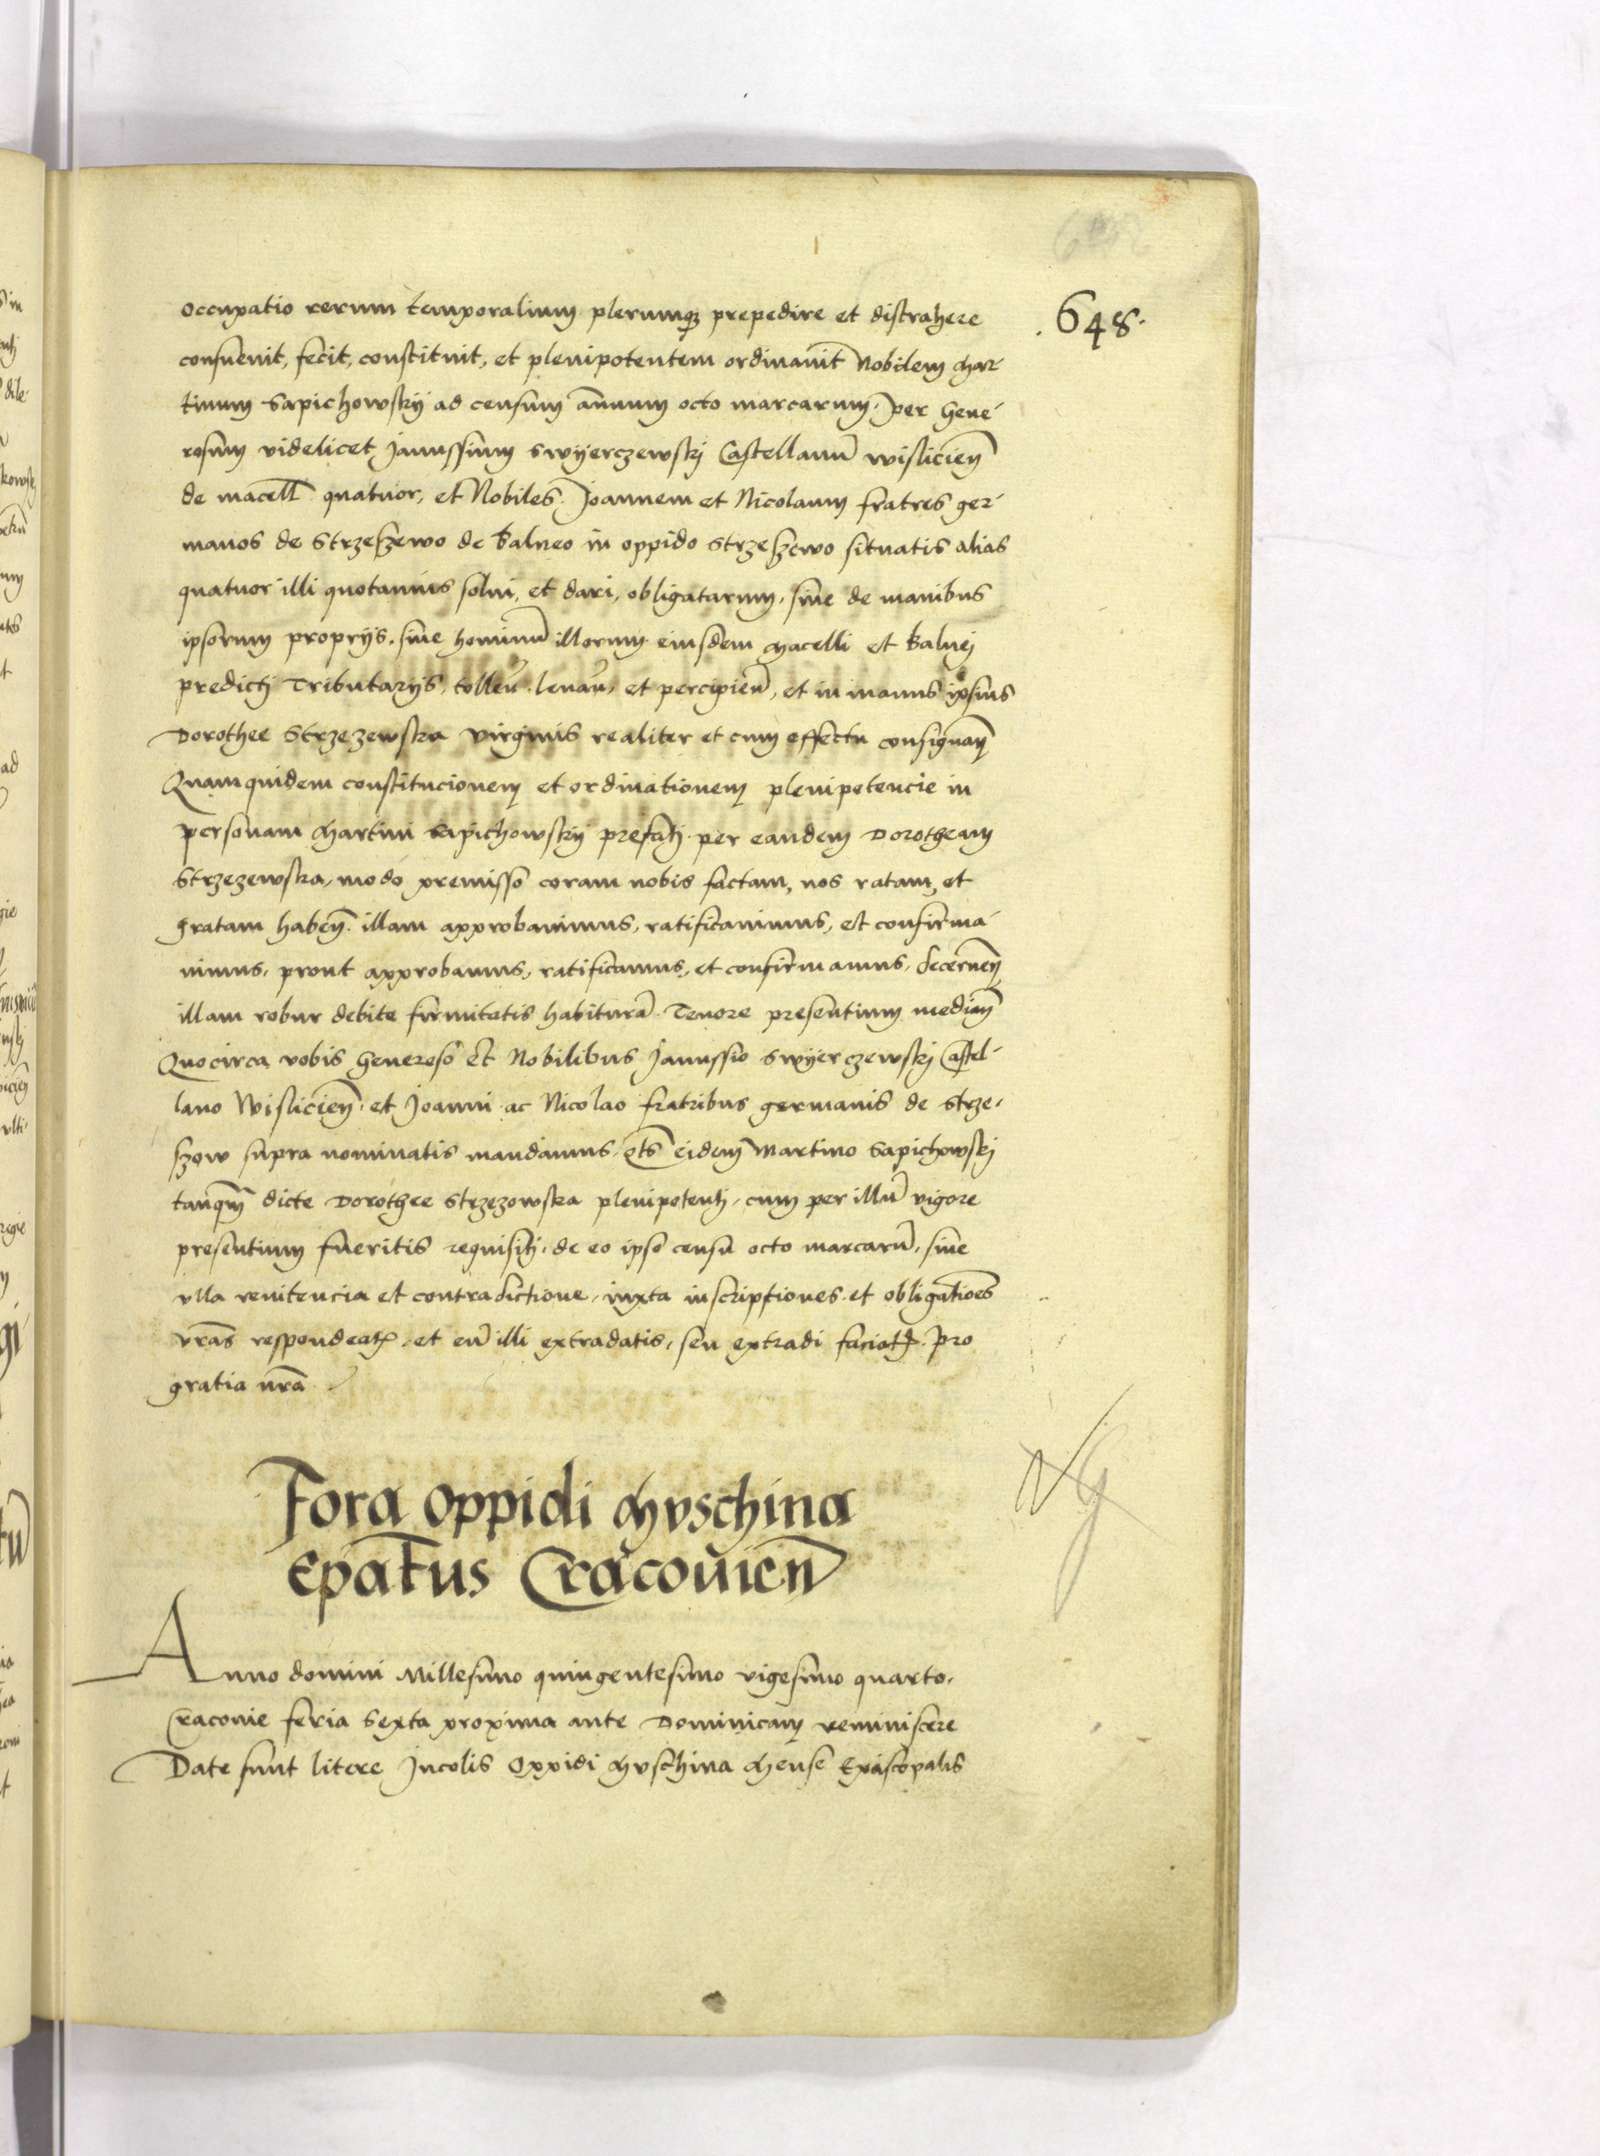 .648.
occupatio rerum temporalium plerumqȝ prepedire et distrahere
consuevit, fecit, constituit, et plenipotentem ordinavit Nobilem Mar-
tinum Sapichowskij ad censum annuum octo marcarum, per Gene-
rosum videlicet Janussium Swyerczewskj Castellanū wisliciensem
de macell quatuor, et Nobiles Joannem et Nicolaum fratres ger-
manos de Strzeszewo de balneo in oppido Strzeszewo situatis alias
quatuor illi quotannis solvi, et dari, obligatarum, sive de manibus
ipsorum proprijs, sive hominū illorum eiusdem Macelli et balnej
predictj Tributarijs, tolleñ levañ, et percipieñ, et in manus ipsius
Dorothee Strzezewska virginis realiter et cum effectu consignañ
Quamquidem constitucionem et ordinationem plenipotencie in
personam Martini Sapichowskij prefatj per eandem Dorotheam
Strzezewska, modo premisso coram nobis factam, nos ratam et
gratam habeñ illam approbavimus, ratificavimus, et confirma-
vimus, prout approbamus, ratificamus, et confirmamus, decerneñ
illam robur debite firmitatis habiturā Tenore presentium mediañ
Quocirca vobis Generoso Et Nobilibus Janussio Swyerczewskj Castel-
lano Wislicieñ et Joanni ac Nicolao fratribus germanis de Strze-
szow supra nominatis mandamus, eidem Martino Sapichowskj
tanqm̄ dicte Dorothee Strzezowska plenipotentj, cum per illū vigore
presentium fueritis requisitj, de eo ipso censu octo marcarū, sine
ulla renitencia et contradictione, iuxta inscriptiones et obligatioēs
vrās respondeatis, et eū illi extradatis, seu extradi faciatis. pro
gratia nrā
Fora oppidi Muschina
Epatus Cracovieñ
Anno domini Millesimo quingentesimo vigesimo quarto,
Cracovie feria sexta proxima ante Dominicam reminiscere
Date sunt litere Incolis Oppidi Muschina Mense Episcopalis